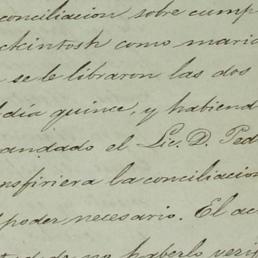 conciliacion sobre cump
ckintosh como marid
se le libraron las dos
dia quince, y habiend
andado el Lic. D. Ped
nsfiriera la conciliacion
poder necesario. El ac
haberlo veri